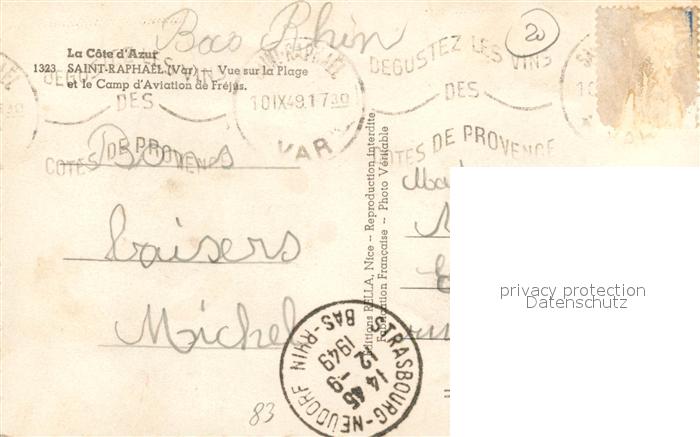 Bas Rhin
20
La Côte d'Azur
1323 SAINT-RAPHAËL (Var) -- Vue sur la Plage
et le Camp d'Aviation de Fréjus.
DEGUSTEZ LES VINS
DES
COTES DE PROVENCE
RAPHAËL
10 IX 49. 17 30
VAR
DEGUSTEZ LES VINS
DES
COTES DE PROVENCE
Bons
baisers
Michel
Editions RELLA, Nice -- Reproduction interdite
Fabrication Française -- Photo Véritable
privacy protection
Datenschutz
STRASBOURG-NEUDORF
BAS-RHIN
14 45
12 -9
1949
83